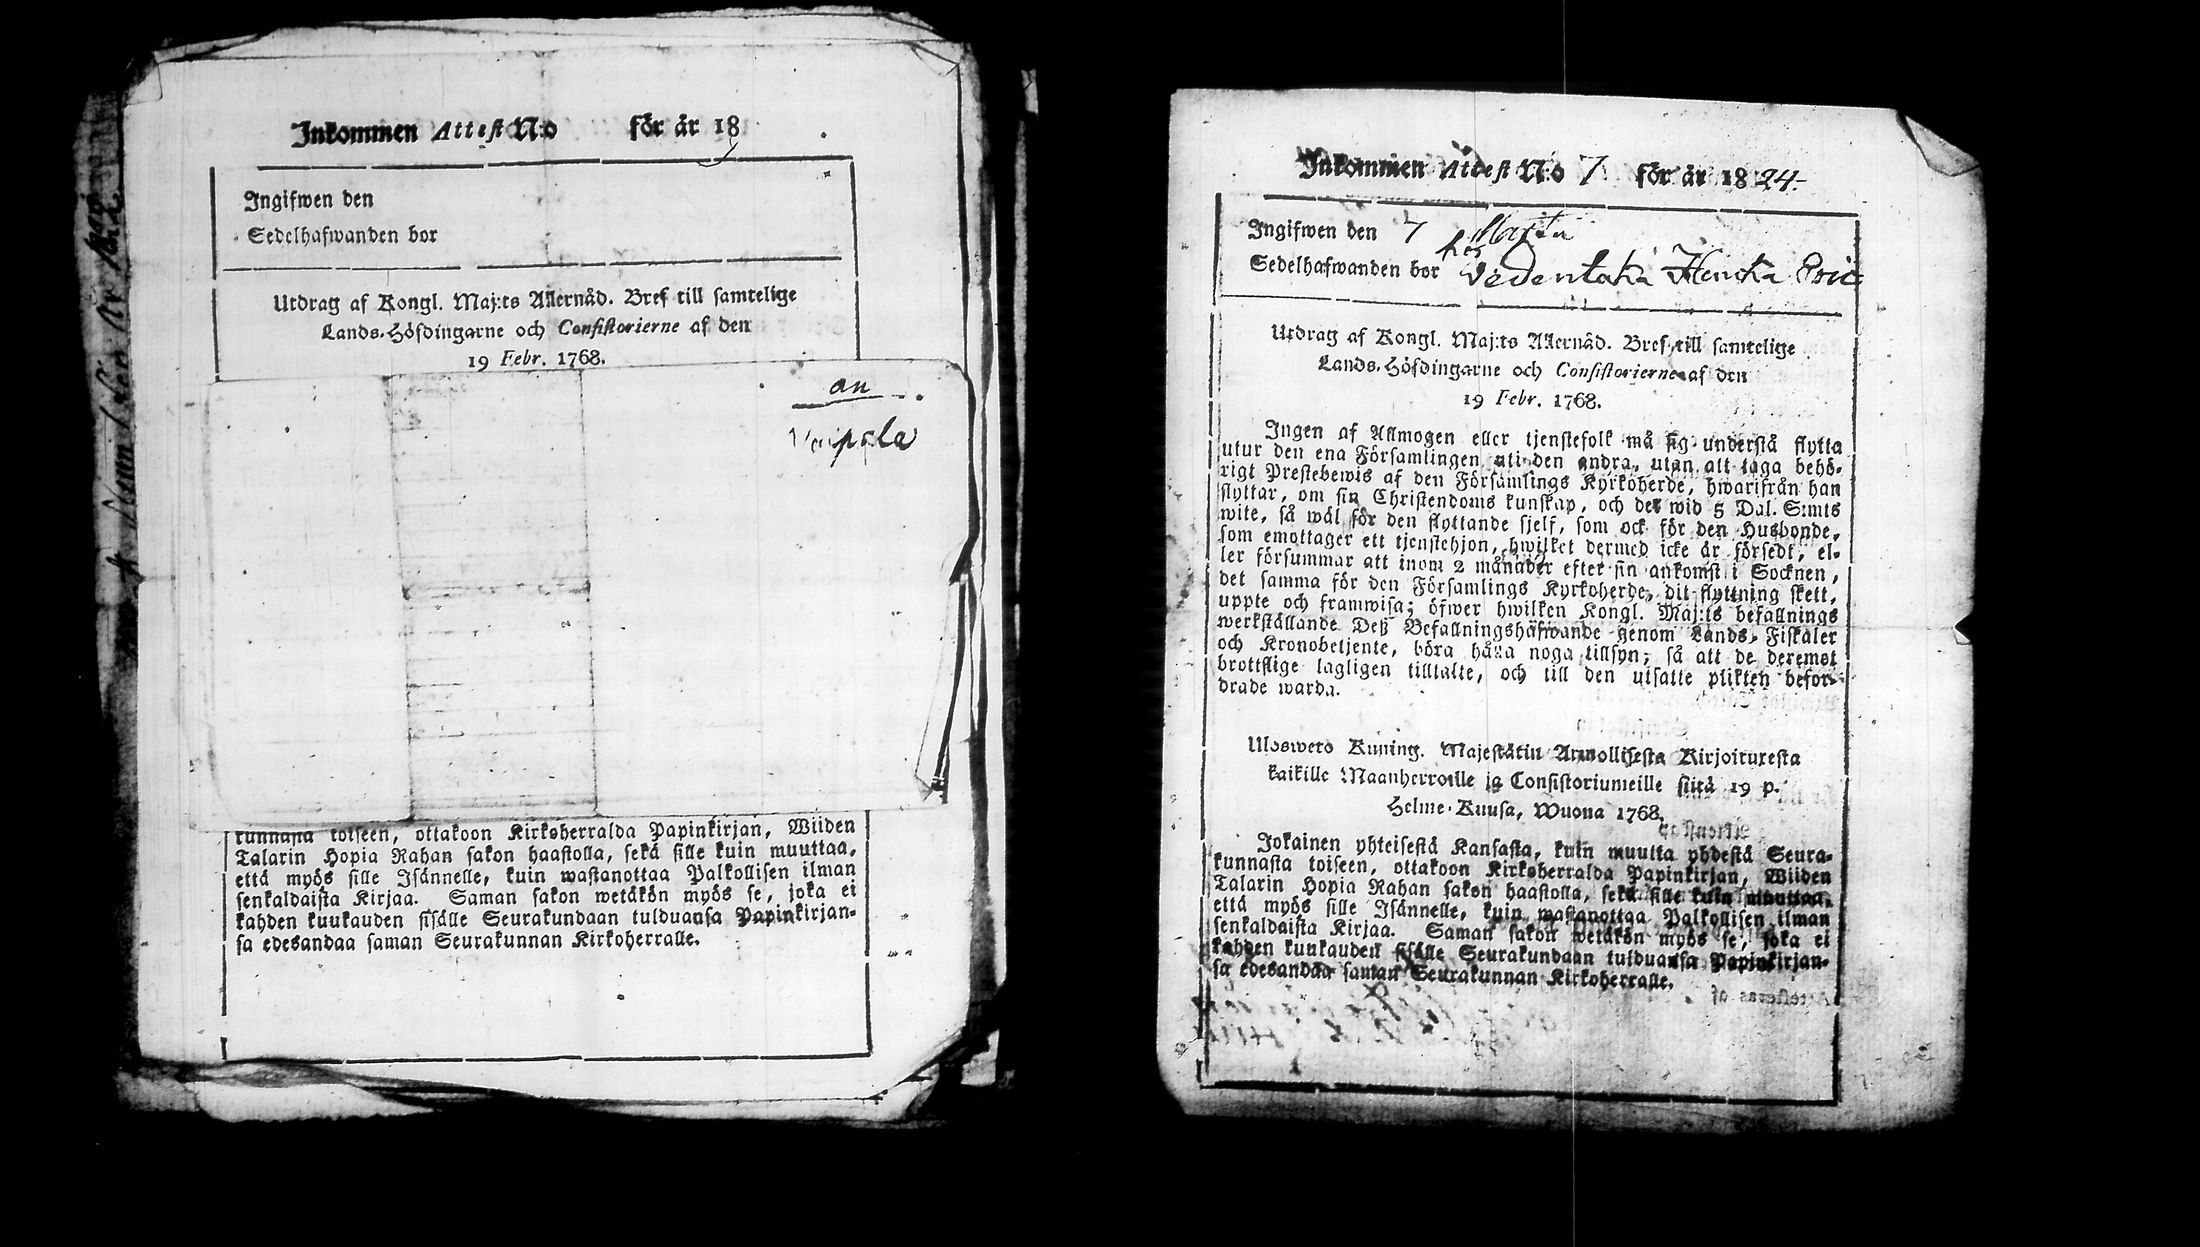 Inkommen Attest N:o för år 18
Ingifwen den
Sedelhafwanden bor
Utdrag af Kongl. Maj:ts Allernåd. Bref till samtelige
Lands-Höfdingarne och Consistorierne af den
19 Febr. 1768.
an
kunnasta toiseen, ottakoon Kirkoherralda Papinkirjan, Wiiden
Talarin Hopia Rahan sakon haastolla, sekä sille kuin muuttaa,
että myös sille Isännelle, kuin wastanottaa Palkollisen ilman
senkaldaista Kirjaa. Saman sakon wetäkön myös se, joka ei
kahden kuukauden sisälle Seurakundaan tulduansa Papinkirjan-
sa edesandaa saman Seurakunnan Kirkoherralle.
Inkommen Attest N:o 7 för år 1824.
Ingifwen den 7 Martii
hos
Sedelhafwanden bor Vedentaka Heicka Eric
Utdrag af Kongl. Maj:ts Allernåd. Bref till samtelige
Lands-Höfdingarne och Consistorierne af den
19 Febr. 1768.
Ingen af Allmogen eller tjenstefolk må sig understå flytta
utur den ena Församlingen uti den andra, utan att taga behö-
rigt Prestebewis af den Församlings Kyrkoherde, hwarifrån han
flyttar, om sin Christendoms kunskap, och det wid 5 Dal. S:mts
wite, så wäl för den flyttande sjelf, som ock för den Husbonde,
som emottager ett tjenstehjon, hwilket dermed icke är försedt, el-
ler försummar att inom 2 månader efter sin ankomst i Socknen,
det samma för den Församlings Kyrkoherde, dit flyttning skett,
uppte och framwisa; öfwer hwilken Kongl. Maj:ts befallnings
werkställande Deß Befallningshafwande genom Lands-Fiskaler
och Kronobetjente, böra hålla noga tillsyn; så att de deremot
brottslige lagligen tilltalte, och till den utsatte plikten befor-
drade warda.
Ulosweto Kuning. Majestätin Armollisesta Kirjoituxesta
kaikille Maanherroille ja Consistoriumeille siitä 19 p.
Helme-Kuusa, Wuona 1768.
Jokainen yhteisestä Kansasta, kuin muutta yhdestä Seura-
kunnasta toiseen, ottakoon Kirkoherralda Papinkirjan, Wiiden
Talarin Hopia Rahan sakon haastolla, sekä sille kuin muuttaa,
että myös sille Isännelle, kuin wastanottaa Palkollisen ilman
senkaldaista Kirjaa. Saman sakon wetäkön myös se, joka ei
kahden kuukauden sisälle Seurakundaan tulduansa Papinkirjan-
sa edesandaa saman Seurakunnan Kirkoherralle.